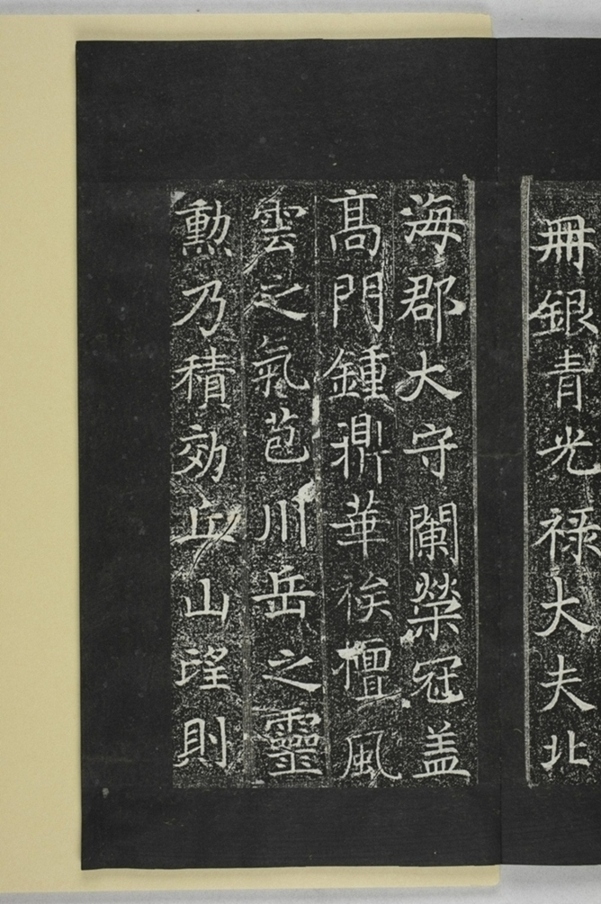 冊銀青光祿大夫北
海郡大守蘭榮冠盖
髙門鍾鼎華族檀風
雲之氣苞川岳之靈
勲乃積効丘山望則